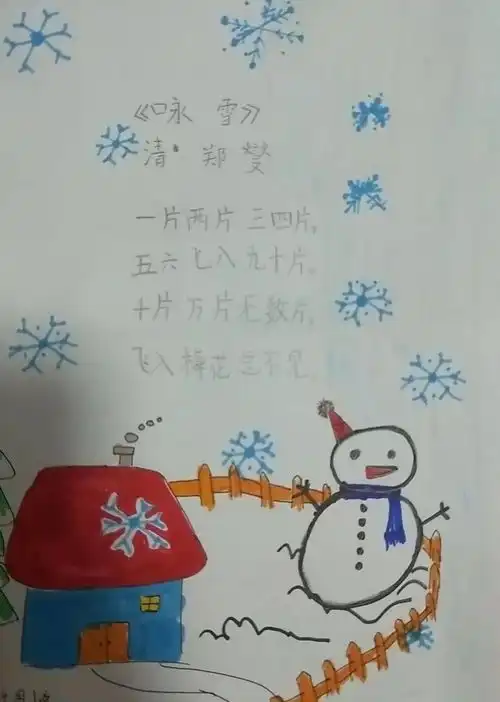 《咏 雪》
清· 郑燮
一片两片三四片，
五六七八九十片。
十片万片无数片，
飞入梅花总不见